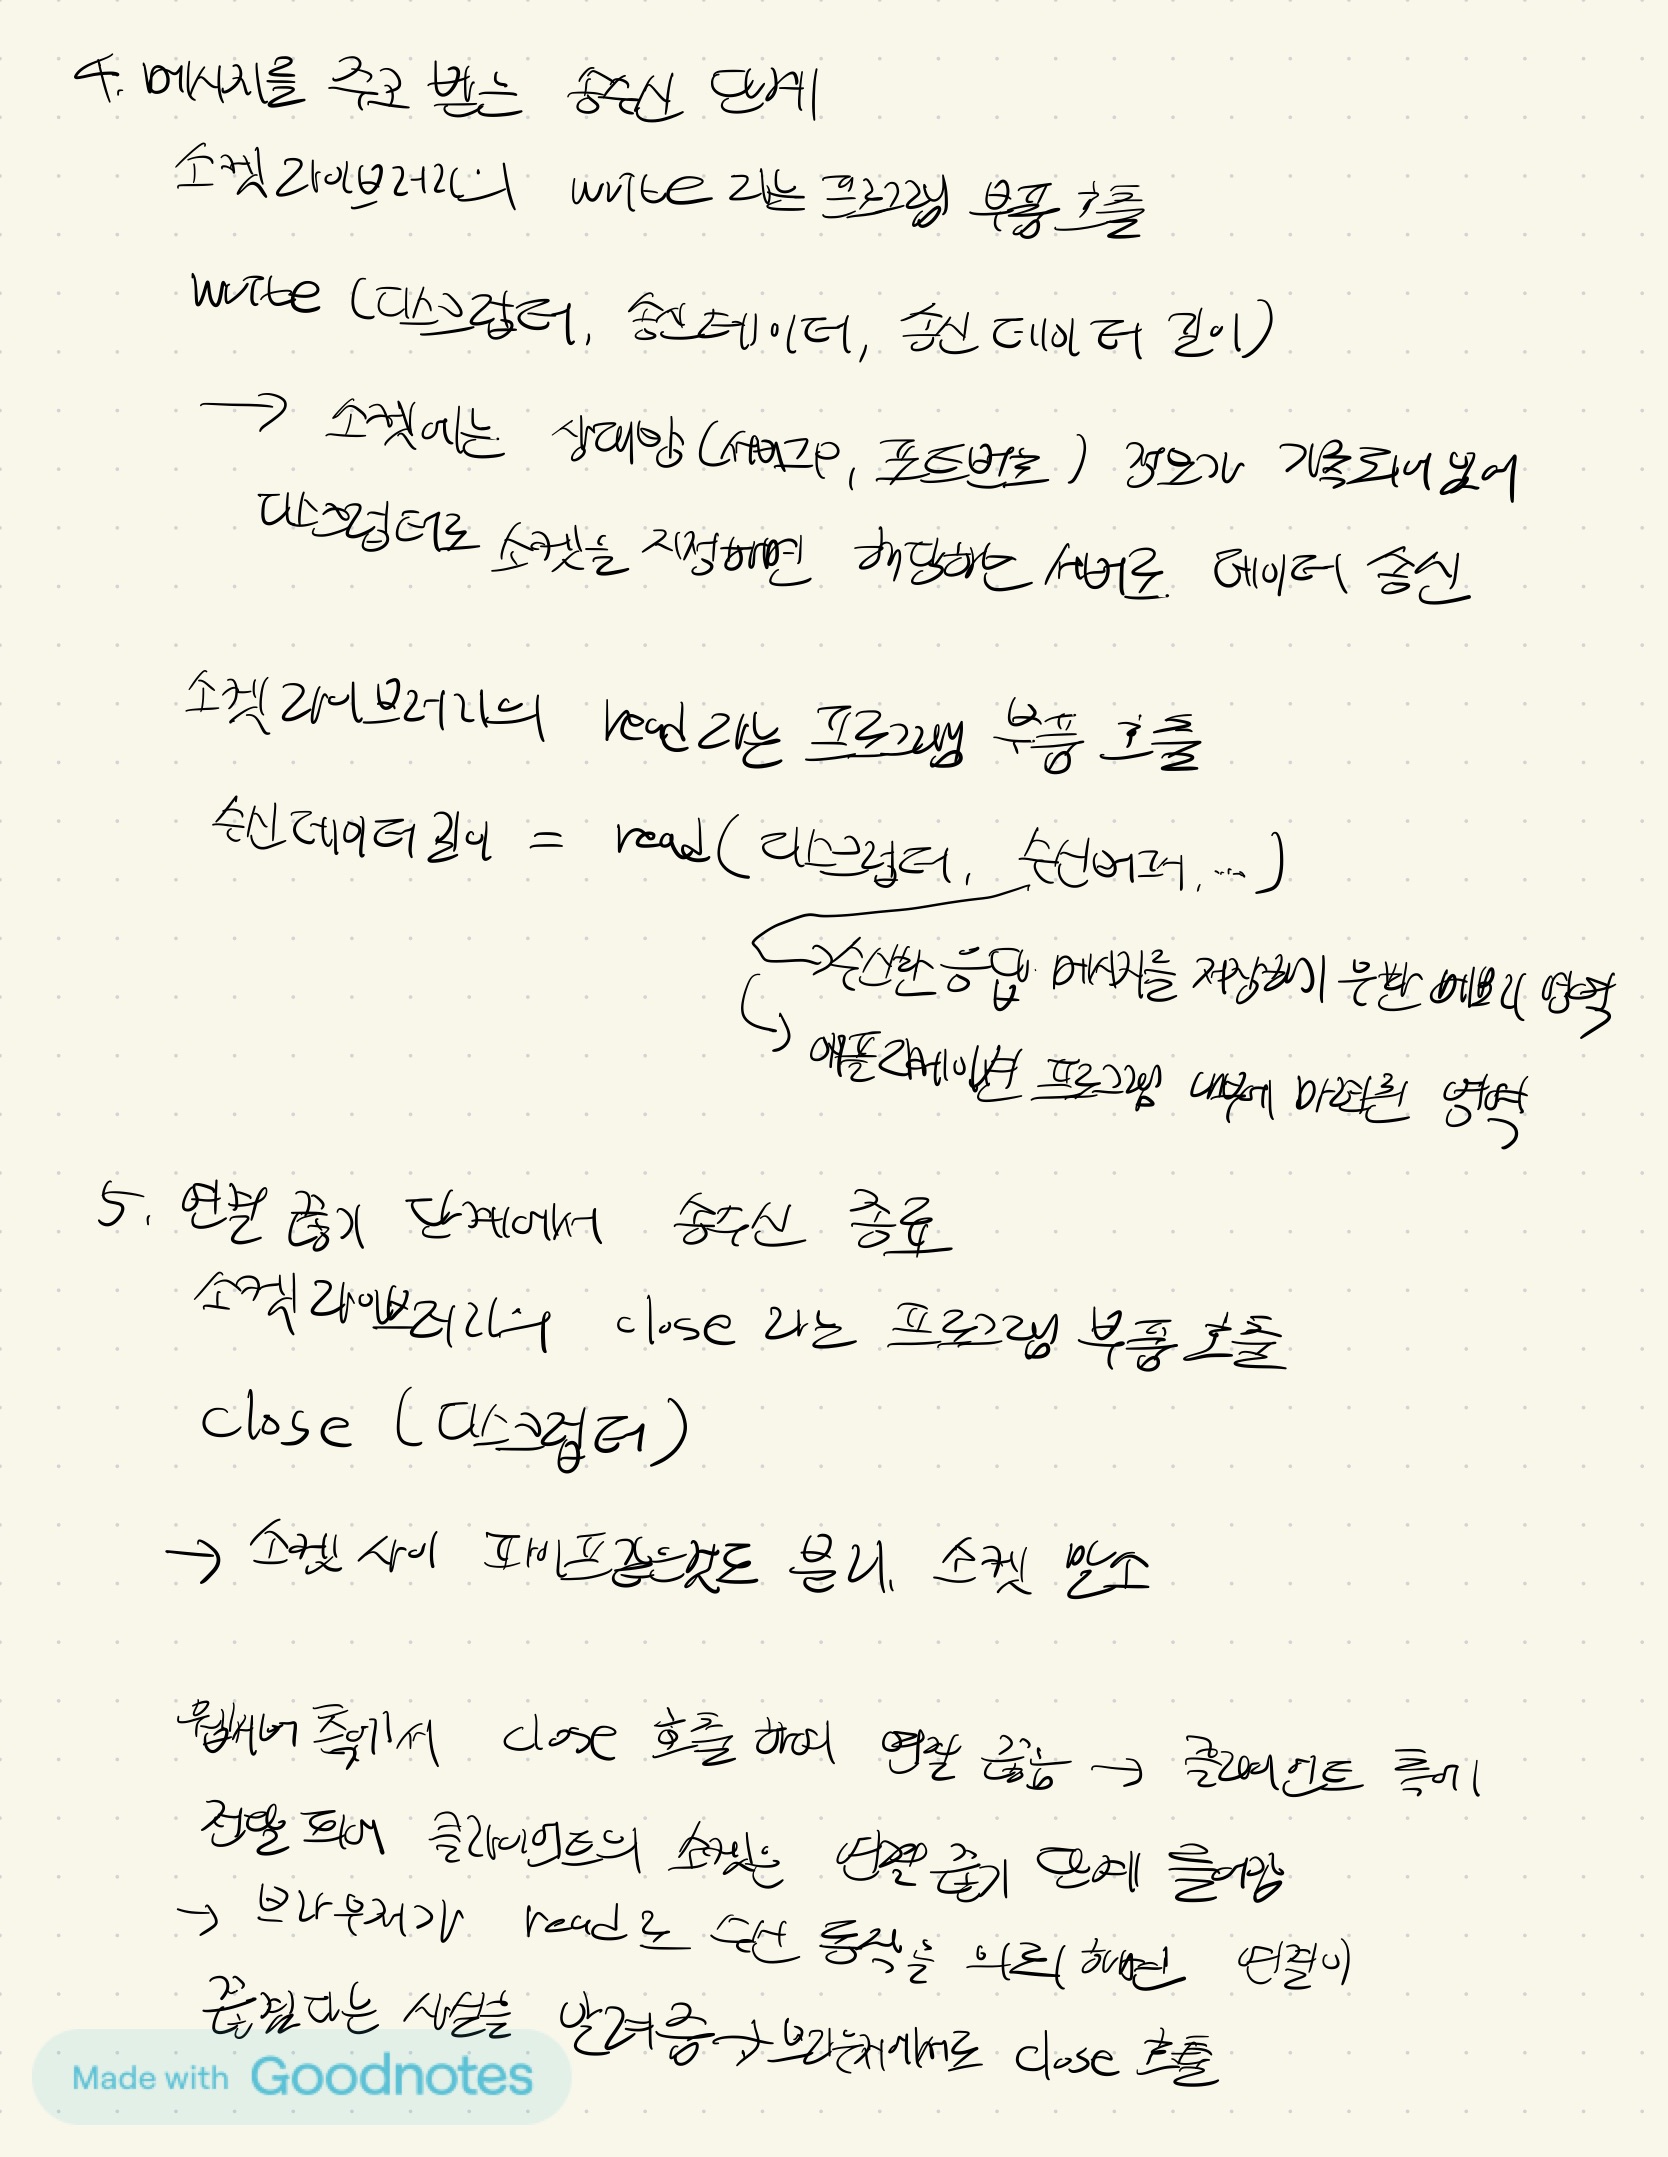 4. 메시지를 주고 받는 송수신 단계
소켓 라이브러리의 write 라는 프로그램 부품 호출
write (디스크립터, 송신데이터, 송신 데이터 길이)
→ 소켓에는 상대방(서버IP, 포트번호) 정보가 기록되어 있어
디스크립터로 소켓을 지정하면 해당하는 서버로 데이터 송신
소켓 라이브러리의 read 라는 프로그램 부품 호출
수신 데이터 길이 = read( 디스크립터, 수신버퍼, … )
→수신한 응답 메시지를 저장하기 위한 메모리 영역
→ 애플리케이션 프로그램 내부에 마련된 영역
5. 연결 끊기 단계에서 송수신 종료
소켓 라이브러리의 close 라는 프로그램 부품 호출
close (디스크립터)
→ 소켓 사이 파이프같은것도 분리, 소켓 말소
웹서버 측에서 close 호출 하여 연결 끊음 → 클라이언트 측에
전달 되어 클라이언트의 소켓은 연결 끊기 단계 들어감
→ 브라우저가 read로 수신 동작을 의뢰하면 연결이
끊겼다는 사실을 알려줌 → 브라우저에서도 close 호출
Made with Goodnotes